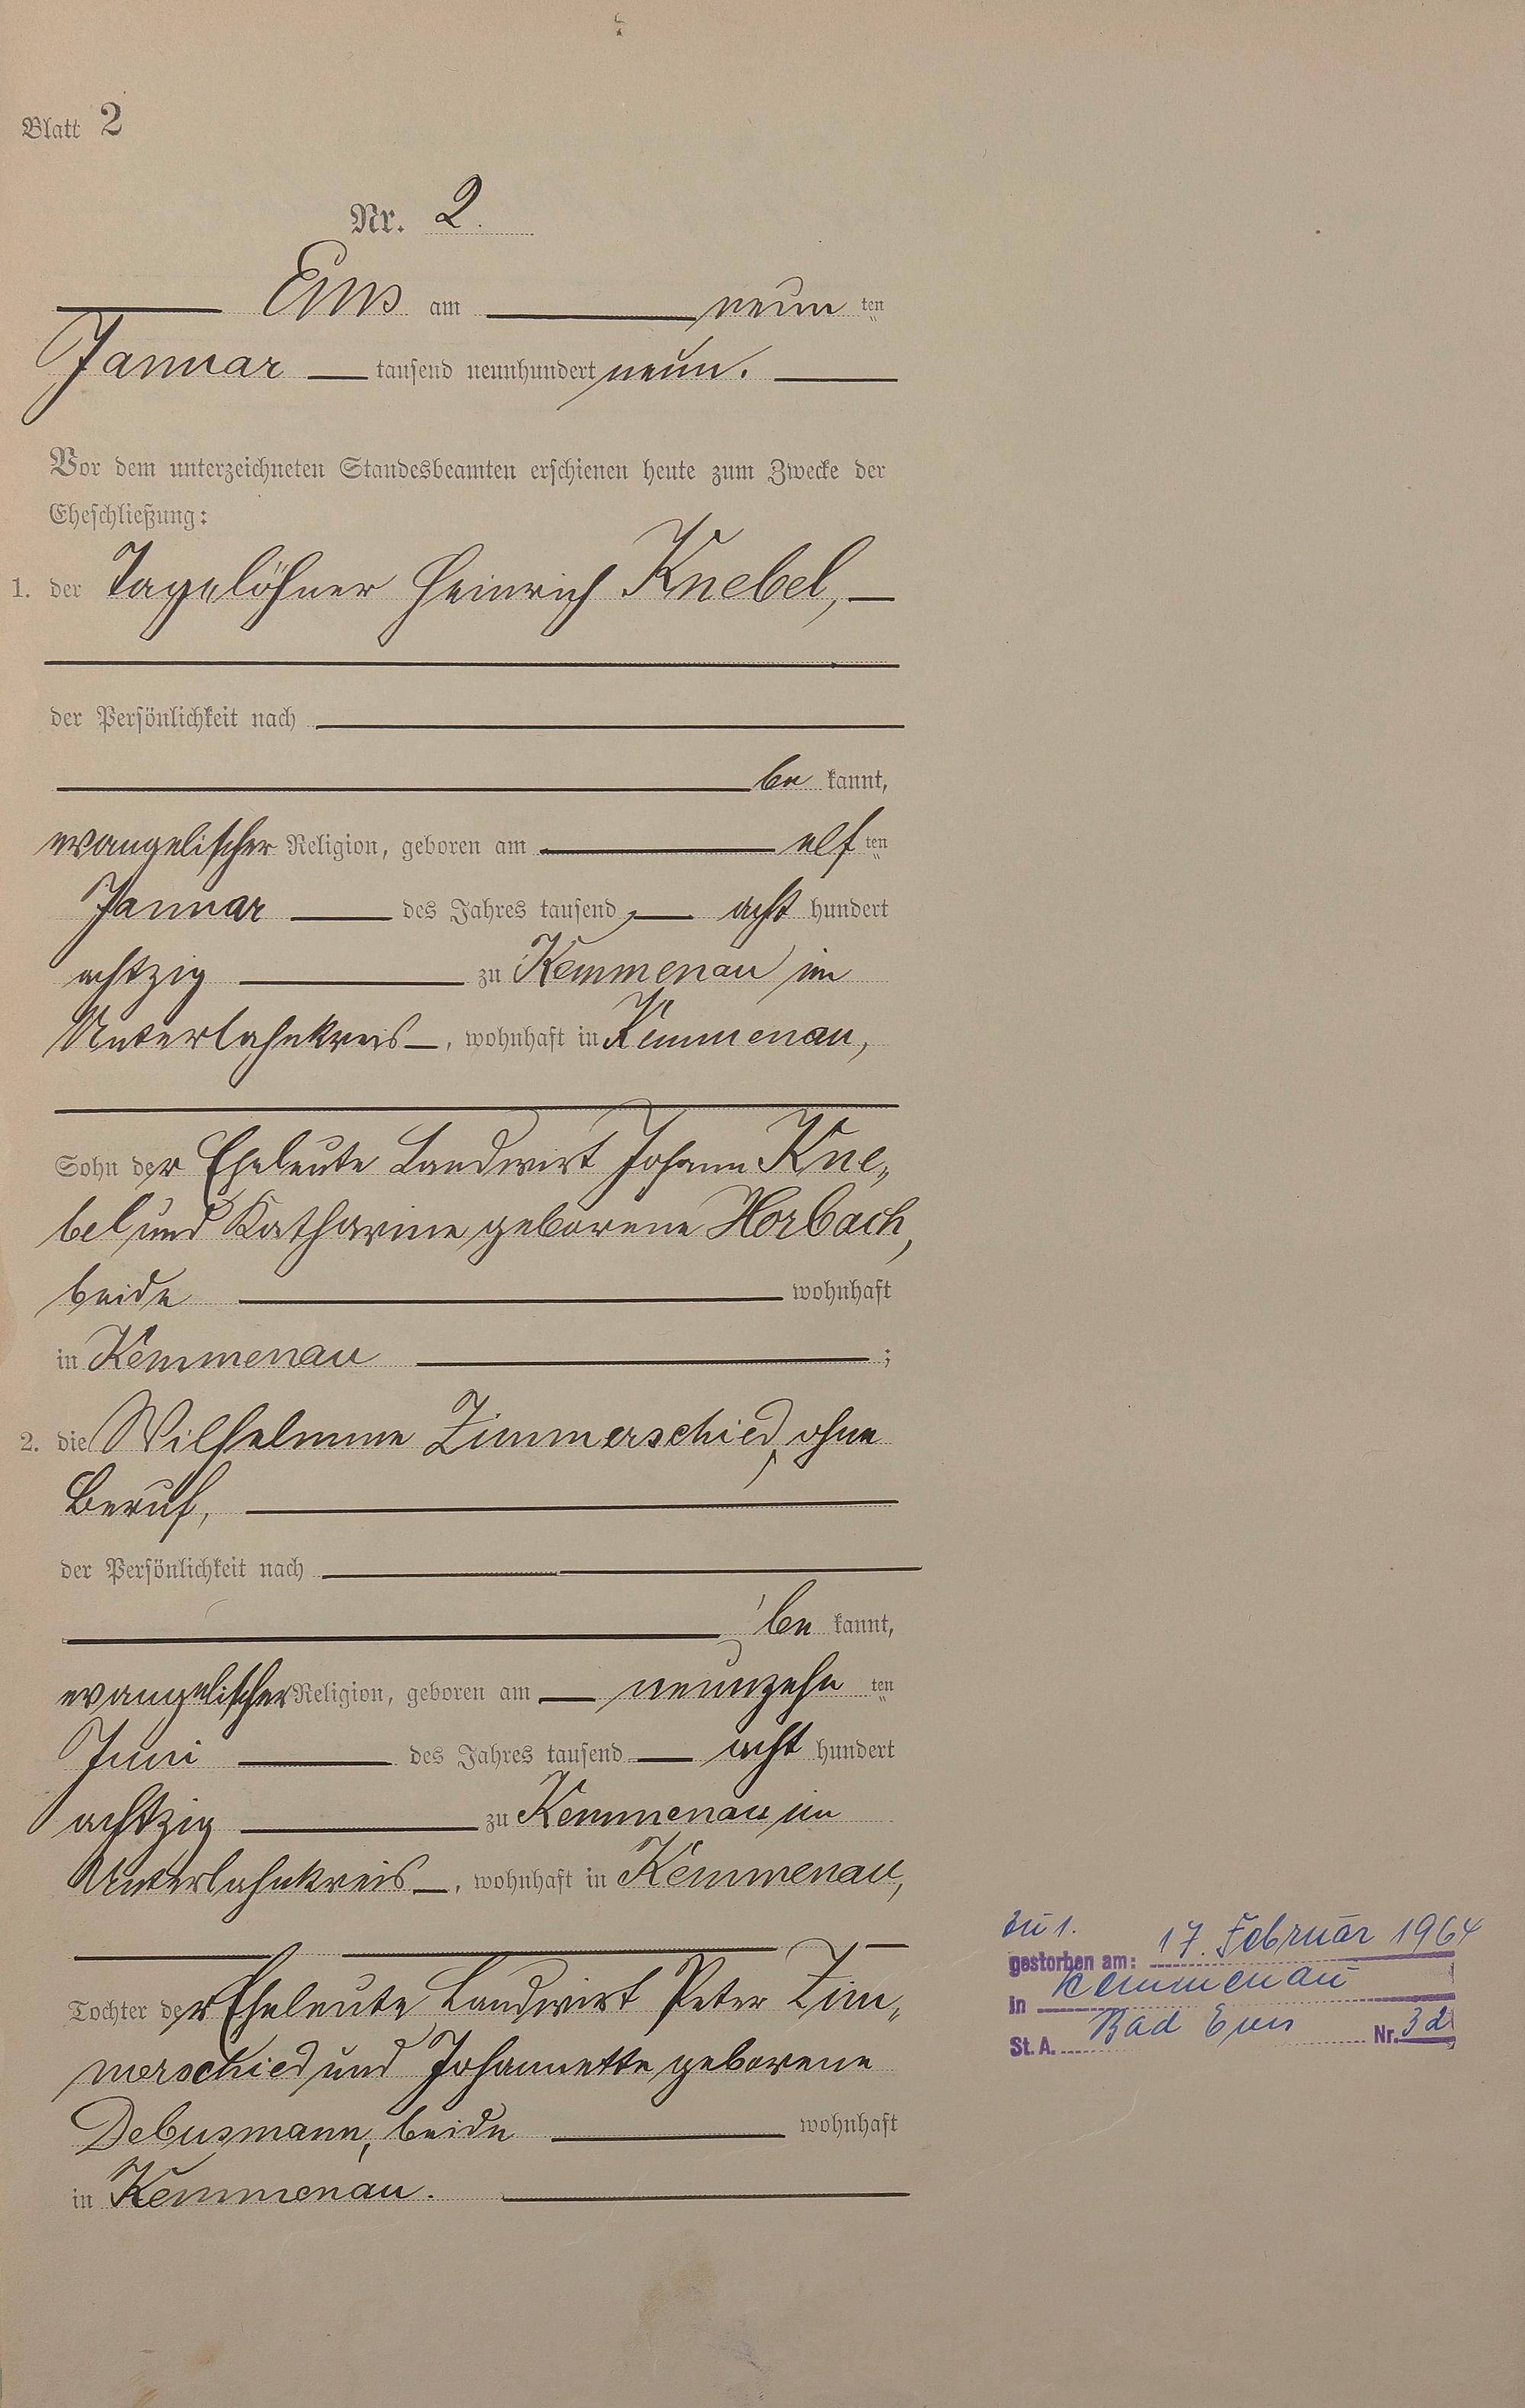 Blatt 2
Nr. 2.
Ems am neun ten
Januar tausend neunhundert neun.
Vor dem unterzeichneten Standesbeamten erschienen heute zum Zwecke der
Eheschließung:
1. der Tagelöhner Heinrich Knebel,
der Persönlichkeit nach
be kannt,
evangelischer Religion, geboren am elf ten
Januar des Jahres tausend acht hundert
achtzig zu Kemmenau im
Unterlahnkreis, wohnhaft in Kemmenau,
Sohn der Eheleute Landwirt Johann Kne-
bel und Katharine geborene Horbach,
beide wohnhaft
in Kemmenau ;
2. die Wilhelmine Zimmerschied, ohne
Beruf,
der Persönlichkeit nach
be kannt,
evangelischer Religion, geboren am neunzehn ten
Juni des Jahres tausend acht hundert
achtzig zu Kemmenau im
Unterlahnkreis, wohnhaft in Kemmenau,
Tochter der Eheleute Landwirt Peter Zim-
merschied und Johannette geborene
Debusmann, beide wohnhaft
in Kemmenau.
zu 1.
gestorben am: 17. Februar 1964
in Kemmenau
St. A. Bad Ems Nr. 32